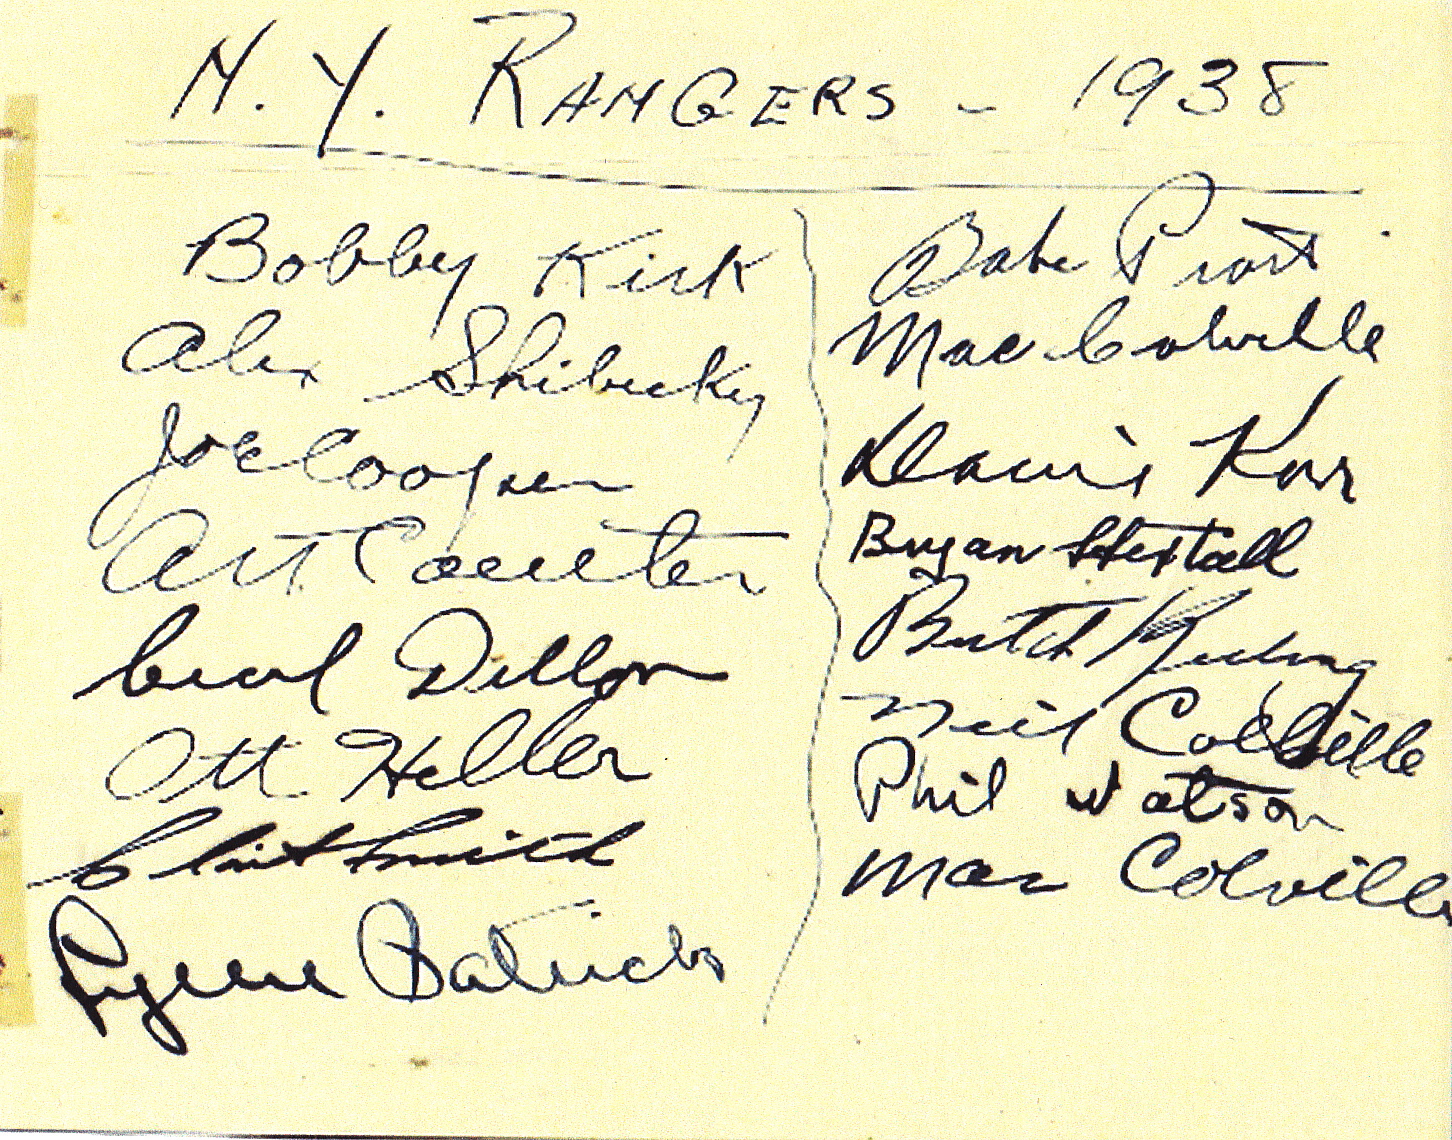 N.Y. RANGERS - 1938
Bobby Kirk
Alex Shibicky
Joe Cooper
Art Coulter
Cecil Dillon
Ott Heller
Clint Smith
Lynn Patrick
Babe Pratt
Mac Colville
Davie Kerr
Bryan Hextall
Butch Keeling
Neil Colville
Phil Watson
Mac Colville